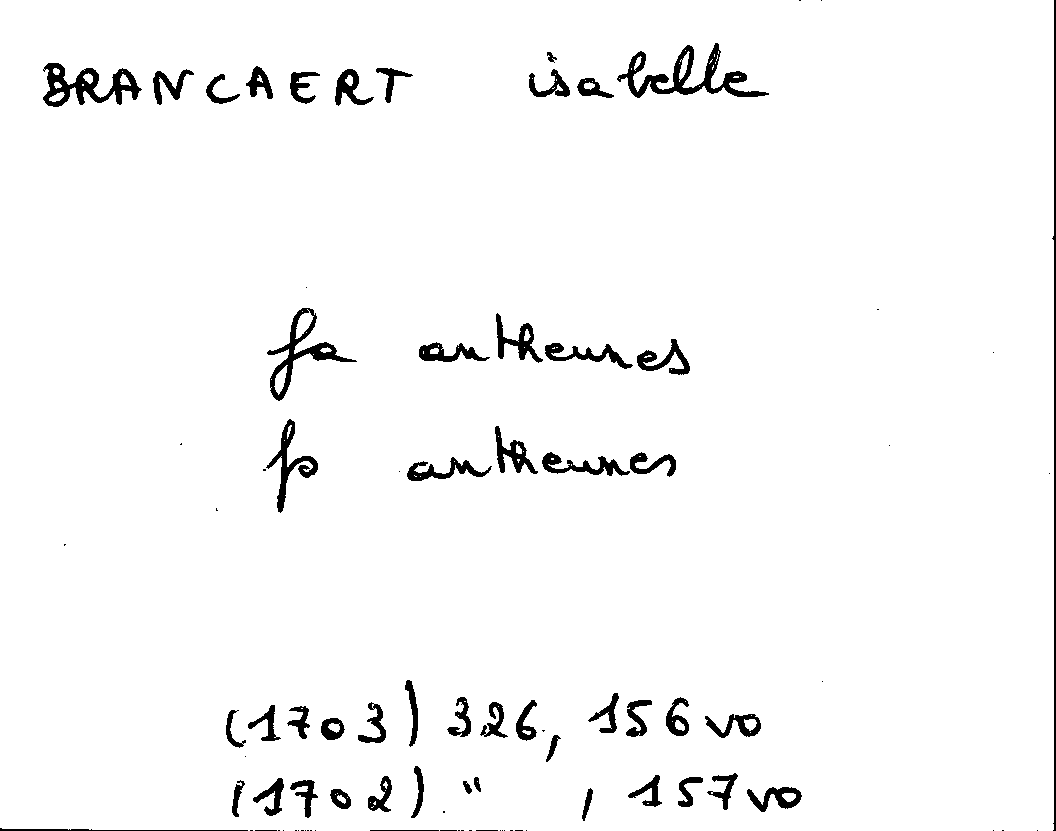 BRANCAERT isabelle
fa antheunes
fs antheunes
(1703) 326, 156 vo
(1702) " , 157 vo